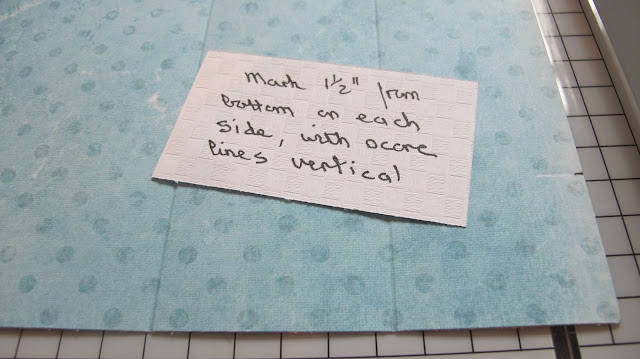 Mark 1½" from
bottom on each
side, with score
lines vertical